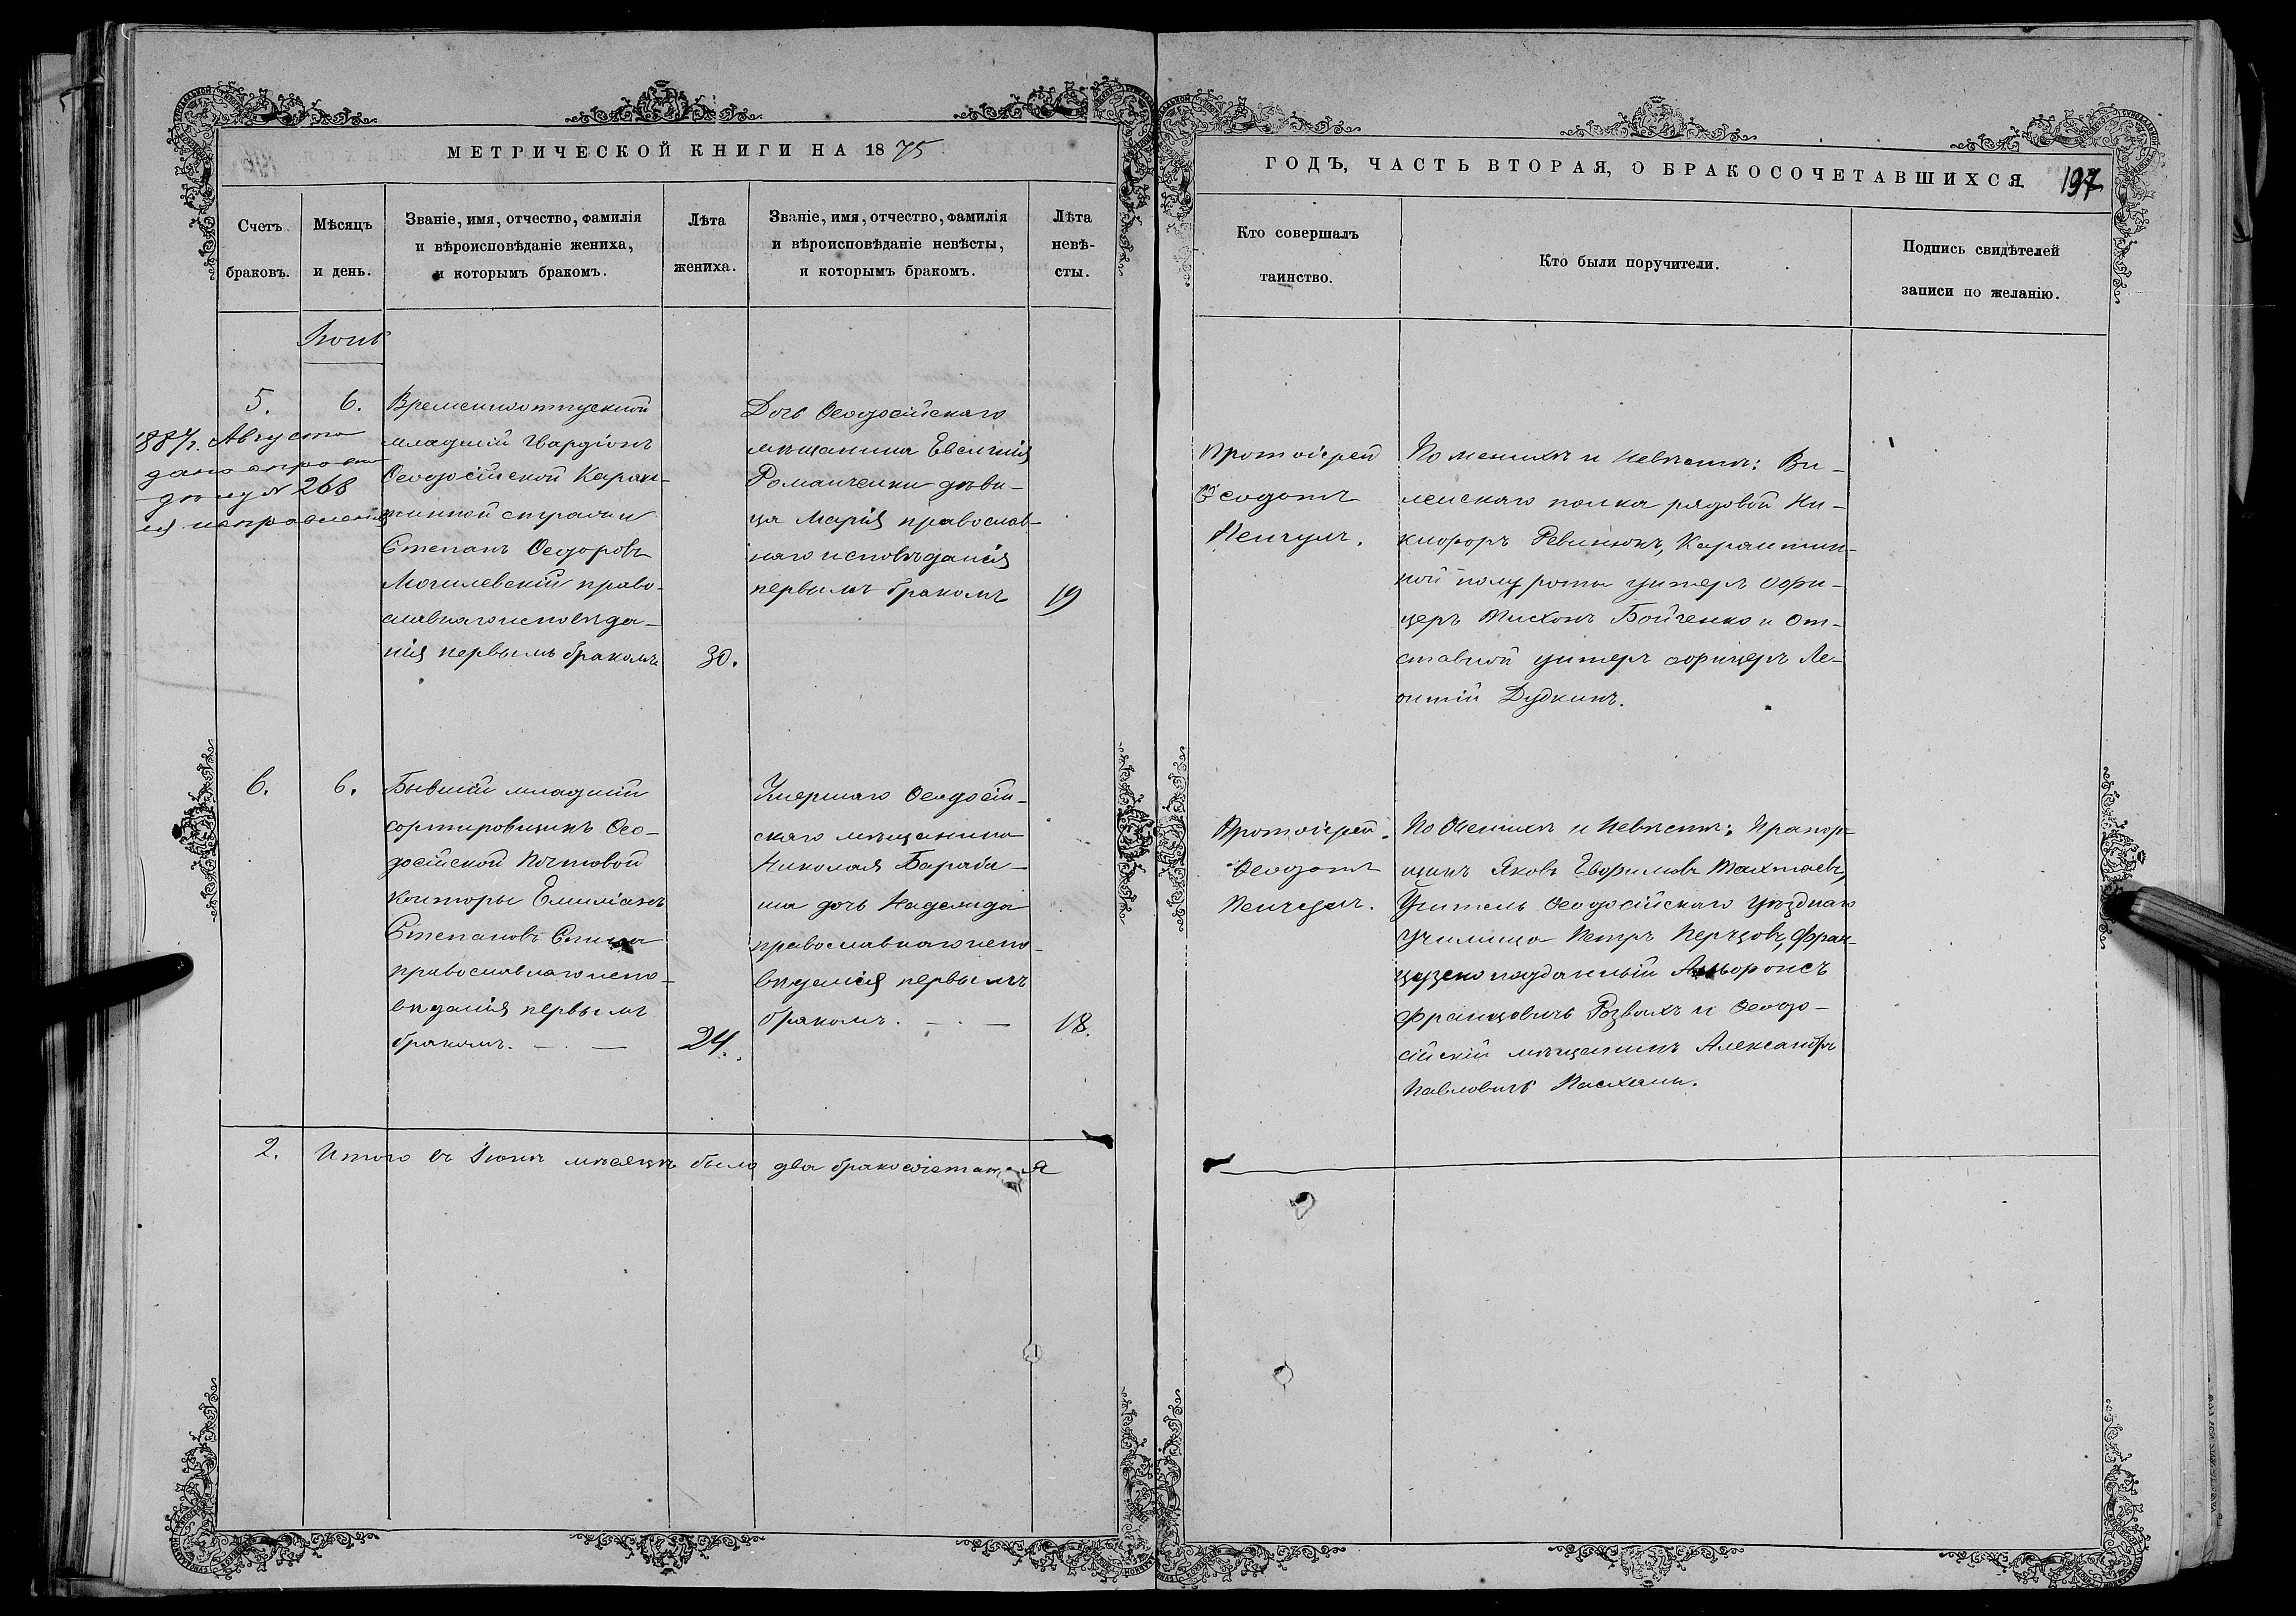 МЕТРИЧЕСКОЙ КНИГИ НА 1875
ГОДЪ, ЧАСТЬ ВТОРАЯ, О БРАКОСОЧЕТАВШИХСЯ.
197
Счетъ браковъ.
Мѣсяцъ и день.
Званіе, имя, отчество, фамилія
и вѣроисповѣданіе жениха,
и которымъ бракомъ.
Лѣта
жениха.
Званіе, имя, отчество, фамилія
и вѣроисповѣданіе невѣсты,
и которымъ бракомъ.
Лѣта
невѣ-
сты.
Кто совершалъ
таинство.
Кто были поручители.
Подпись свидѣтелей
записи по желанію.
Іюнь
5.
6.
1887г. Августа
дана справка
подъ № 268
Временноотпускной
младшій Гвардіонъ
Ѳеодосійской Каран-
тинной стражи
Степанъ Ѳедоровъ
Могилевскій право-
славнаго исповѣда-
нія первымъ бракомъ
30.
Дочь Ѳеодосійскаго
мѣщанина Евсигнія
Романченки дѣви-
ца Марія православ-
наго исповѣданія
первымъ бракомъ
19
Протоіерей
Ѳеодотъ
Пенчулъ.
По женихѣ и невѣстѣ: Ви-
ленскаго полка рядовой Ни-
кифоръ Ревинюкъ, Карантин-
ной полуроты унтеръ офи-
церъ Тихонъ Бойченко и От-
ставной унтеръ офицеръ Ле-
онтій Дудкинъ.
6.
6.
Бывшій младшій
сортировщикъ Ѳео-
досійской Почтовой
Конторы Емиліанъ
Степановъ
православнаго испо-
вѣданія первымъ
бракомъ. — . —
24.
Умершаго Ѳеодосій-
скаго мѣщанина
Николая Бараба-
ша дочь Надежда
православнаго испо-
вѣданія первымъ
бракомъ. — . —
18.
Протоіерей
Ѳеодотъ
Пенчулъ.
По Женихѣ и Невѣстѣ: Прапор-
щикъ Яковъ Ефимовъ Тахтаевъ,
Учитель Ѳеодосійскаго Уѣзднаго
Училища Петръ Перцовъ, Фран-
цузско подданный
Францовичъ и Ѳеодо-
сійскій мѣщанинъ Александръ
Павловичъ
2.
Итого въ Іюнѣ мѣсяцѣ было два бракосочетанія